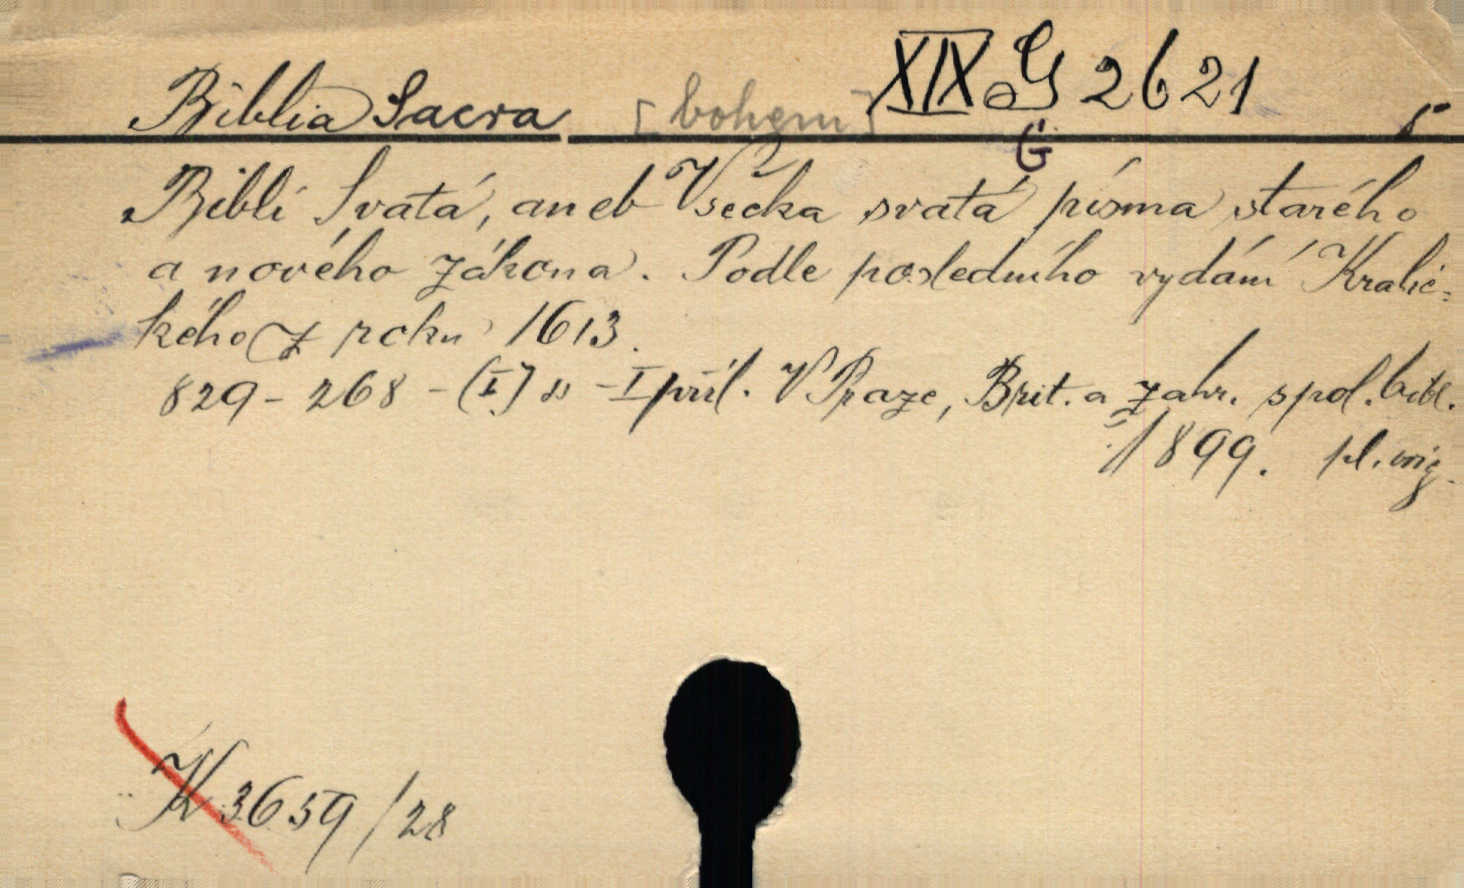 Biblia Sacra [bohem] XIX G 2621
G
Biblí Svatá, aneb Všecka svatá písma starého
a nového zákona. Podle posledního vydání Kralic=
kého z roku 1613.
829 - 268 - (I) s - I příl. V Praze, Brit. a zahr. spol. bibl.
1899. pl. orig.
K 3659/28